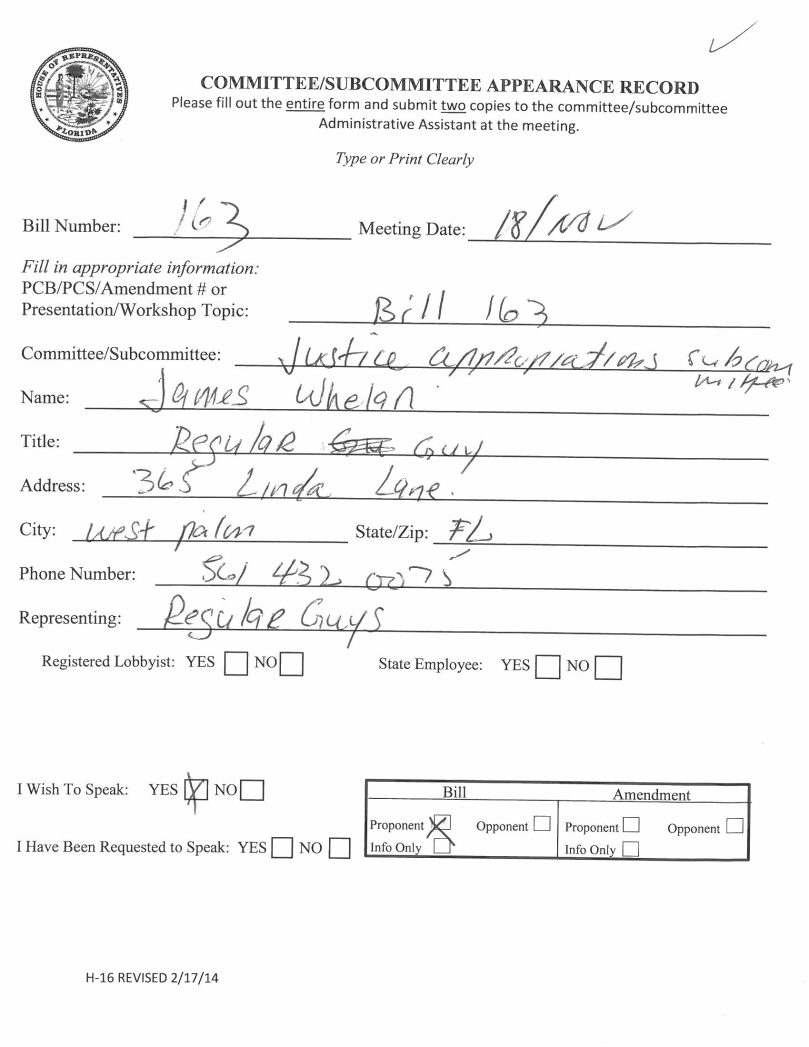 HOUSE OF REPRESENTATIVES
FLORIDA
COMMITTEE/SUBCOMMITTEE APPEARANCE RECORD
Please fill out the entire form and submit two copies to the committee/subcommittee
Administrative Assistant at the meeting.
Type or Print Clearly
Bill Number: 163 Meeting Date: 18/NOV
Fill in appropriate information:
PCB/PCS/Amendment # or
Presentation/Workshop Topic: Bill 163
Committee/Subcommittee: Justice appropiations subcom
mittee
Name: James Whelan
Title: Regular Guy
Address: 365 Linda Lane.
City: west palm State/Zip: FL
Phone Number: 561 432 0075
Representing: Regular Guys
Registered Lobbyist: YES NO State Employee: YES NO
I Wish To Speak: YES X NO
Bill Amendment
Proponent X Opponent Proponent Opponent
I Have Been Requested to Speak: YES NO Info Only Info Only
H-16 REVISED 2/17/14